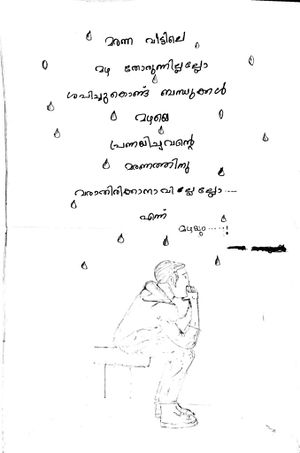 മരണ വീട്ടിലെ
മഴ തോരുന്നില്ലല്ലോ
ശപിച്ചുകൊണ്ട് ബന്ധുക്കൾ
മഴയെ
പ്രണയിച്ചവന്റെ
മരണത്തിനു
വരാതിരിക്കാനാവില്ലല്ലോ----
എന്ന്
മഴയും-----!